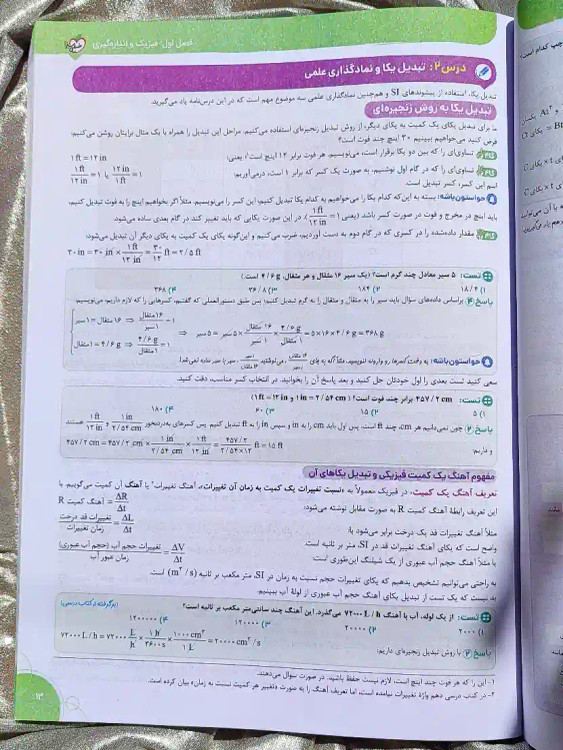 فصل اول: فیزیک و اندازه‌گیری
درس ۲: تبدیل یکا و نمادگذاری علمی
تبدیل یکا، استفاده از پیشوندهای SI و هم‌چنین نمادگذاری علمی سه موضوع مهم است که در این درس‌نامه یاد می‌گیرید.
تبدیل یکا به روش زنجیره‌ای
ما برای تبدیل یکای یک کمیت به یکای دیگر، از روش تبدیل زنجیره‌ای استفاده می‌کنیم. مراحل این تبدیل را همراه با یک مثال برایتان روشن می‌کنیم:
فرض کنید می‌خواهیم ببینیم ۳۰ اینچ چند فوت است؟
گام۱ تساوی‌ای را که بین دو یکا برقرار است، می‌نویسیم. هر فوت برابر ۱۲ اینچ است¹؛ یعنی: 1 ft = ۱۲ in
گام۲ تساوی‌ای را که در گام اول نوشتیم، به صورت یک کسر که برابر ۱ است، درمی‌آوریم: 1 ft / ۱۲ in = ۱ یا ۱۲ in / 1 ft = ۱
اسم این کسر، کسر تبدیل است.
حواستون باشه: بسته به این‌که کدام یکا را می‌خواهیم به کدام یکا تبدیل کنیم، این کسر را می‌نویسیم. مثلاً اگر بخواهیم اینچ را به فوت تبدیل کنیم،
باید اینچ در مخرج و فوت در صورت کسر باشد (یعنی 1 ft / ۱۲ in = ۱). در این صورت یکایی که باید تغییر کند در گام بعدی ساده می‌شود.
گام۳ مقدار داده‌شده را در کسری که در گام دوم به دست آوردیم، ضرب می‌کنیم و این‌گونه یکای یک کمیت به یکای دیگر آن تبدیل می‌شود:
۳۰ in = ۳۰ in × ۱ ft / ۱۲ in = ۳۰/۱۲ ft = ۲/۵ ft
تست: ۵ سیر معادل چند گرم است؟ (یک سیر ۱۶ مثقال و هر مثقال، ۴/۶ g است.)
۱) ۱۸/۴ ۲) ۱۸۴ ۳) ۳۶/۸ ۴) ۳۶۸
پاسخ ۴ براساس داده‌های سؤال باید سیر را به مثقال و مثقال را به گرم تبدیل کنیم؛ پس طبق دستورالعملی که گفتیم، کسرهایی را که لازم داریم، می‌نویسیم.
۱ سیر = ۱۶ مثقال ⇒ ۱۶ مثقال / ۱ سیر = ۱
۱ مثقال = ۴/۶ g ⇒ ۴/۶ g / ۱ مثقال = ۱
⇒ ۵ سیر = ۵ سیر × ۱۶ مثقال / ۱ سیر × ۴/۶ g / ۱ مثقال = ۵×۱۶×۴/۶ = ۳۶۸ g
حواستون باشه: یه وقت کسرها رو وارونه ننویسید.
سعی کنید تست بعدی را اول خودتان حل کنید و بعد پاسخ آن را بخوانید. در انتخاب کسر مناسب، دقت کنید.
تست: ۴۵۷/۲ cm برابر چند فوت است؟ (۱ in = ۲/۵۴ cm و ۱ ft = ۱۲ in)
۱) ۵ ۲) ۱۵ ۳) ۶۰ ۴) ۱۸۰
پاسخ ۲ چون نمی‌دانیم هر cm، چند ft است؛ پس اول باید cm را به in و سپس in را به ft تبدیل کنیم. پس کسرهای به‌دردبخور ۱ in / ۲/۵۴ cm و ۱ ft / ۱۲ in هستند
و داریم: ۴۵۷/۲ cm = ۴۵۷/۲ cm × ۱ in / ۲/۵۴ cm × ۱ ft / ۱۲ in = ۴۵۷/۲ / ۲/۵۴×۱۲ ft = ۱۵ ft
مفهوم آهنگ یک کمیت فیزیکی و تبدیل یکاهای آن
تعریف آهنگ یک کمیت، در فیزیک معمولاً به «نسبت تغییرات یک کمیت به زمان آن تغییرات»، آهنگ تغییرات² یا آهنگ آن کمیت می‌گوییم. با
این تعریف رابطهٔ آهنگ کمیت R به صورت مقابل نوشته می‌شود: آهنگ کمیت R = ΔR / Δt
مثلاً آهنگ تغییرات قد یک درخت برابر می‌شود با: تغییرات قد درخت / زمان تغییرات = ΔL / Δt
واضح است که یکای آهنگ تغییرات قد در SI، متر بر ثانیه است.
یا مثلاً آهنگ حجم آب عبوری از یک شیلنگ این‌طوری است: تغییرات حجم آب (حجم آب عبوری) / زمان عبور آب = ΔV / Δt
به راحتی می‌توانیم تشخیص بدهیم که یکای تغییرات حجم نسبت به زمان در SI، متر مکعب بر ثانیه (m³ / s) است.
بد نیست که یک تست از تبدیل یکای آهنگ حجم آب عبوری از لولهٔ آب ببینیم.
تست: از یک لوله، آب با آهنگ ۷۲۰۰۰ L / h می‌گذرد. این آهنگ چند سانتی‌متر مکعب بر ثانیه است؟ (برگرفته از کتاب درسی)
۱) ۲۰۰۰ ۲) ۲۰۰۰۰ ۳) ۱۲۰۰۰۰ ۴) ۱۲۰۰۰۰۰
پاسخ ۲ با روش تبدیل زنجیره‌ای داریم: ۷۲۰۰۰ L / h = ۷۲۰۰۰ L/h × ۱ h / ۳۶۰۰ s × ۱۰۰۰ cm³ / ۱ L = ۲۰۰۰۰ cm³ / s
۱- این را که هر فوت چند اینچ است، لازم نیست حفظ باشید. در صورت سوال می‌دهند.
۲- در کتاب درسی دهم واژهٔ تغییرات نیامده است، اما تعریف آهنگ را به صورت «تغییر هر کمیت نسبت به زمان» بیان کرده است.
۱۳